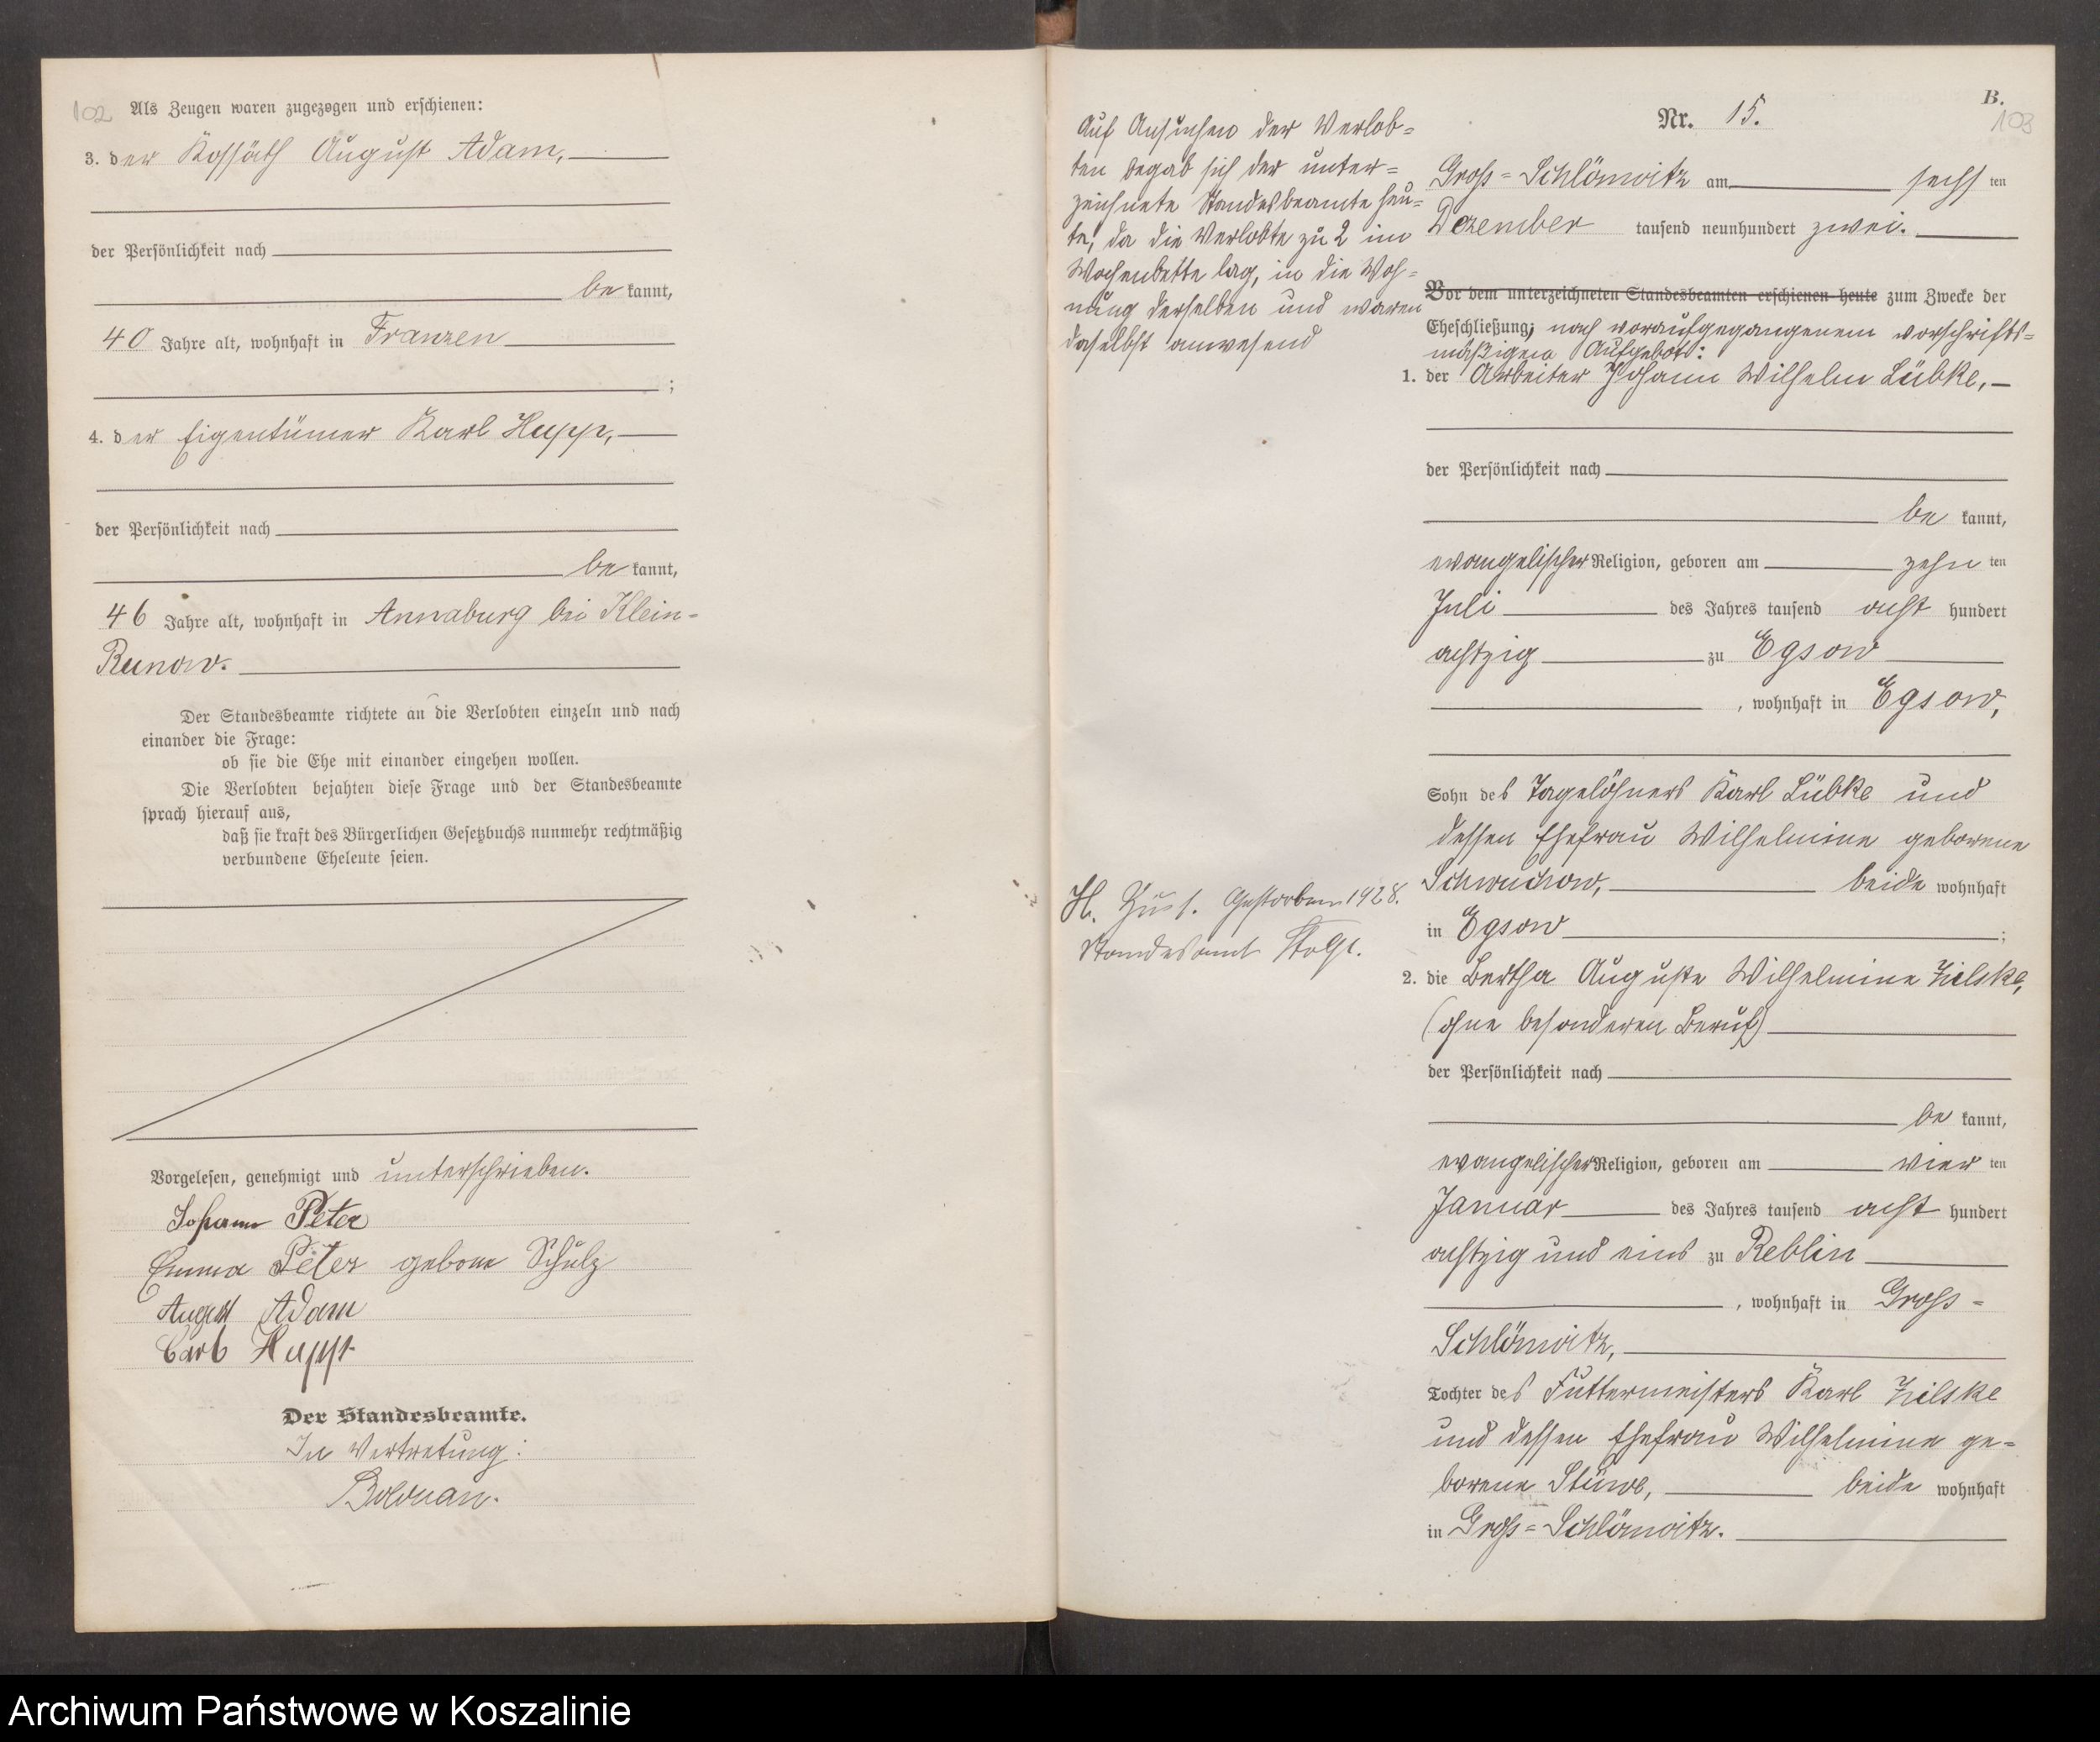 102
Als Zeugen waren zugezogen und erschienen:
3. der Kossäth August Adam,
der Persönlichkeit nach
be kannt,
40 Jahre alt, wohnhaft in Franzen
;
4. der Eigentümer Karl Hupp,
der Persönlichkeit nach
be kannt,
46 Jahre alt, wohnhaft in Annaburg bei Klein-
Runow.
Der Standesbeamte richtete an die Verlobten einzeln und nach
einander die Frage:
ob sie die Ehe mit einander eingehen wollen.
Die Verlobten bejahten diese Frage und der Standesbeamte
sprach hierauf aus,
daß sie kraft des Bürgerlichen Gesetzbuchs nunmehr rechtmäßig
verbundene Eheleute seien.
Vorgelesen, genehmigt und unterschrieben.
Johann Peter
Emma Peter geborne Schulz
August Adam
Carl Hupp
Der Standesbeamte.
In Vertretung:
Auf Ansuchen der Verlob=
ten begab sich der unter=
zeichnete Standesbeamte heu=
te, da die Verlobte zu 2 im
Wochenbette lag, in die Woh=
nung derselben und waren
daselbst anwesend
H. Gestorben 1928.
Standesamt Stolp.
B.
103
Nr. 15.
Gross=Schlönwitz am sechs ten
Dezember tausend neunhundert zwei.
Vor dem unterzeichneten Standesbeamten erschienen heute zum Zwecke der
Eheschließung, nach voraufgegangenem vorschrifts=
mäßigem Aufgebot:
1. der Arbeiter Johann Wilhelm Lübke,
der Persönlichkeit nach
be kannt,
evangelischer Religion, geboren am zehn ten
Juli des Jahres tausend acht hundert
achtzig zu Egsow
, wohnhaft in Egsow,
Sohn des Tagelöhners Karl Lübke und
dessen Ehefrau Wilhelmine geborene
Schwuchow, beide wohnhaft
in Egsow ;
2. die Bertha Auguste Wilhelmine Zielske,
(ohne besonderen Beruf)
der Persönlichkeit nach
be kannt,
evangelischer Religion, geboren am vier ten
Januar des Jahres tausend acht hundert
achtzig und eins zu Reblin
, wohnhaft in Gross=
Schlönwitz,
Tochter des Futtermeisters Karl Zielske
und dessen Ehefrau Wilhelmine ge=
borene Stüwe, beide wohnhaft
in Gross=Schlönwitz.
Archiwum Państwowe w Koszalinie